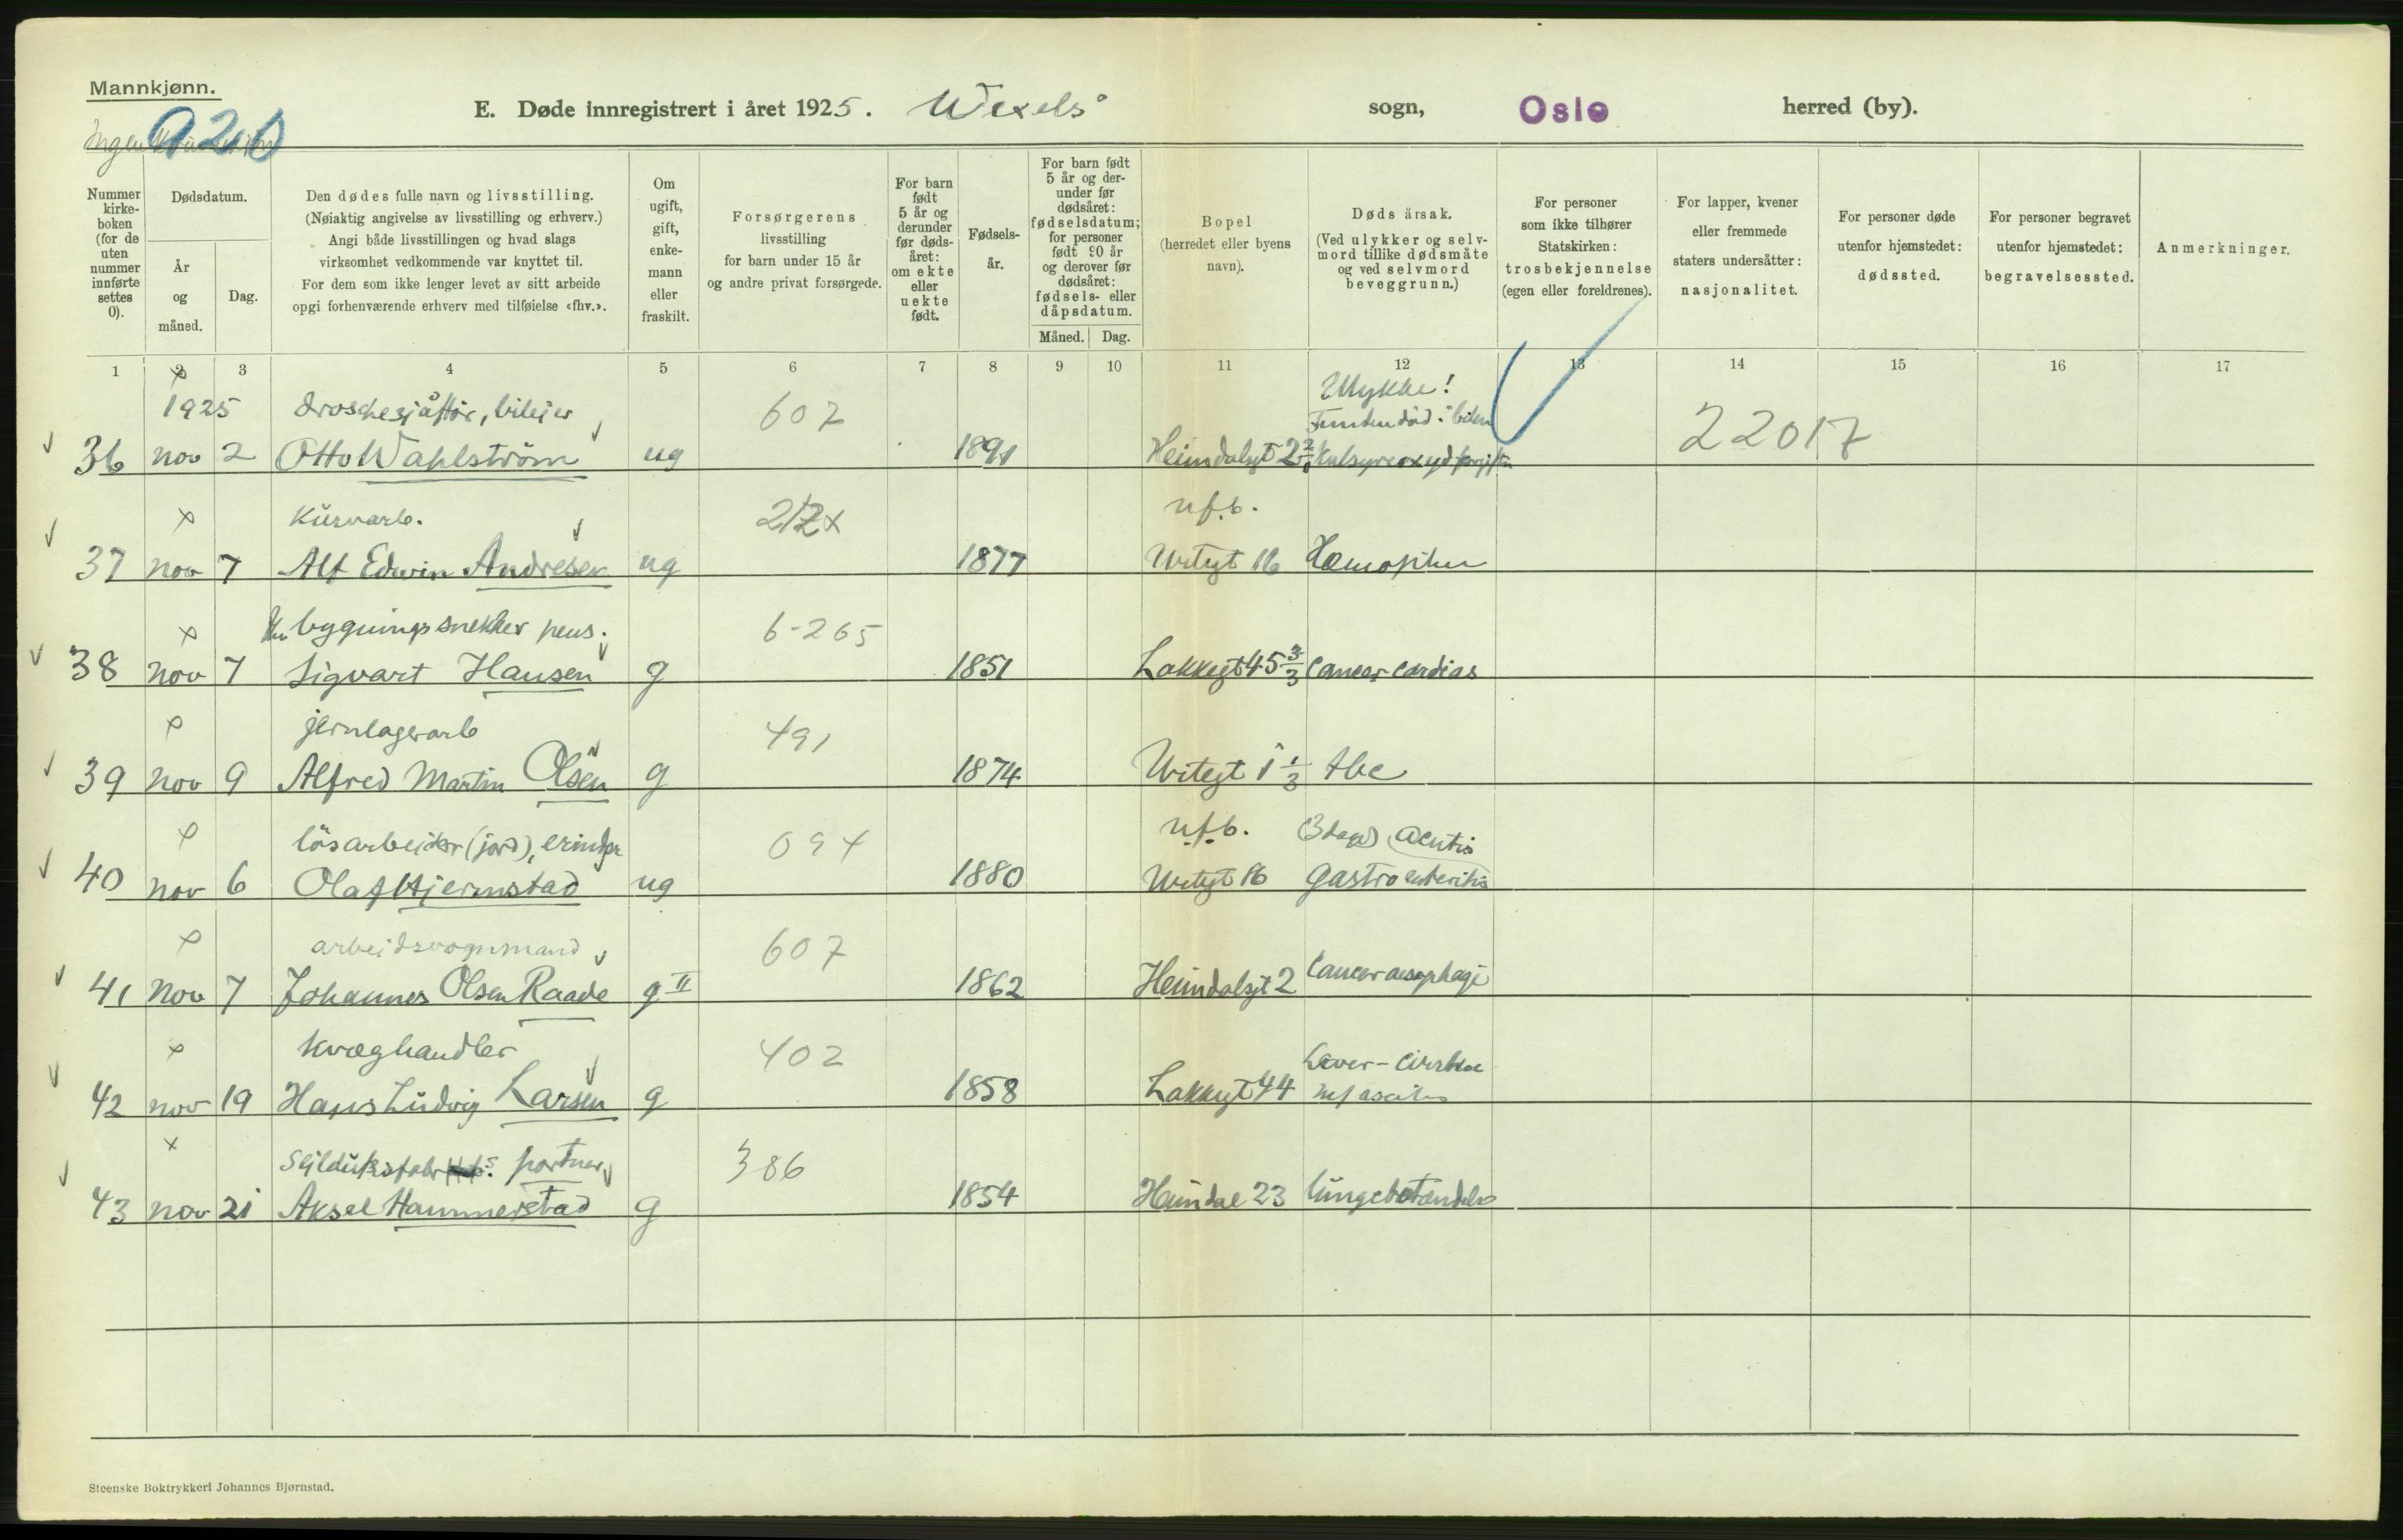 Mannkjønn.
E. Døde innregistrert i året 1925. Wexels sogn, Oslo herred (by).
Nummer kirke-boken (for de uten nummer innførte settes 0).
Dødsdatum.
År og måned.
Dag.
Den dødes fulle navn og livsstilling.
(Nøiaktig angivelse av livsstilling og erhverv.)
Angi både livsstillingen og hvad slags
virksomhet vedkommende var knyttet til.
For dem som ikke lenger levet av sitt arbeide
opgi forhenværende erhverv med tilføielse «fhv.».
Om ugift, gift, enke-mann eller fraskilt.
Forsørgerens
livsstilling
for barn under 15 år
og andre privat forsørgede.
For barn født 5 år og derunder før døds-året: om ekte eller uekte født.
Fødsels-år.
For barn født 5 år og der-under før dødsåret: fødselsdatum; for personer født 90 år og derover før dødsåret: fødsels- eller dåpsdatum.
Måned. Dag.
Bopel
(herredet eller byens navn).
Dødsårsak.
(Ved ulykker og selv-mord tillike dødsmåte og ved selvmord beveggrunn.)
For personer som ikke tilhører Statskirken: trosbekjennelse (egen eller foreldrenes).
For lapper, kvener eller fremmede staters undersåtter: nasjonalitet.
For personer døde utenfor hjemstedet: dødssted.
For personer begravet utenfor hjemstedet: begravelsessted.
Anmerkninger.
1 2 3 4 5 6 7 8 9 10 11 12 13 14 15 16 17
1925 droschesjåffør, bileier 607 Ulykke!
Funden død i bilen 22017
36 nov 2 Otto Wahlström ug 1891 Heimdalsgt 2 Kulsyreoxydforgiftn
x Kurvarb. 212x u.f.b.
37 nov 7 Alf Edwin Andresen ug 1877 Urtegt 16
x fhv bygningssnekker pens. 6-265
38 nov 7 Sigvart Hansen g 1851 Lakkegt 45 3/3 Cancer cardias
jernlagerarb 491
39 nov 9 Alfred Martin Olsen g 1874 Urtegt 1 1/3 tbc
løsarbeider (jord), 094 u.f.b. (3 dage) acutis
40 nov 6 Olaf Hjermstad ug 1880 Urtegt 16 Gastroenteritis
arbeidsvognmand 607
41 nov 7 Johannes Olsen Raade g II 1862 Heimdalsgt 2 Cancer oesophagi
x Kvæghandler 402 Lever-cirrhose
42 nov 19 Hans Ludvig Larsen g 1858 Lakkegt 44 m/ ascites
x Seildüksfabr. portner 386
43 nov 21 Aksel Hammerstad g 1854 Heimdal 23 lungebetændelse
Steenske Boktrykkeri Johannes Bjørnstad.